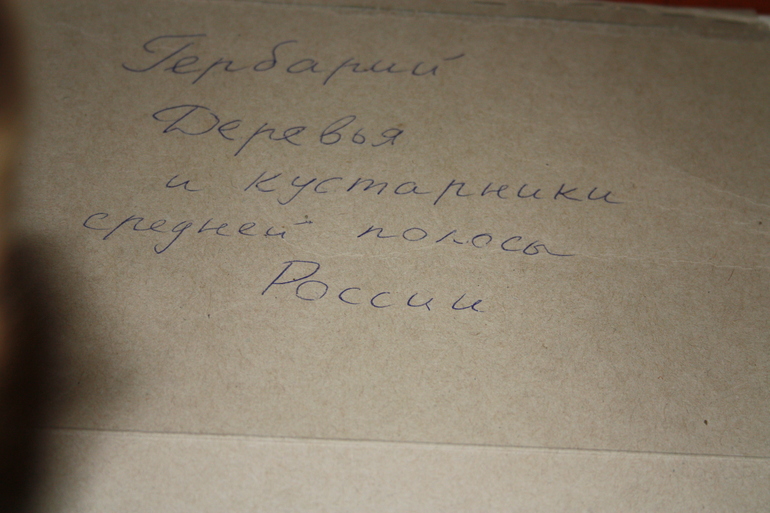 Гербарий
Деревья
и кустарники
средней полосы
России